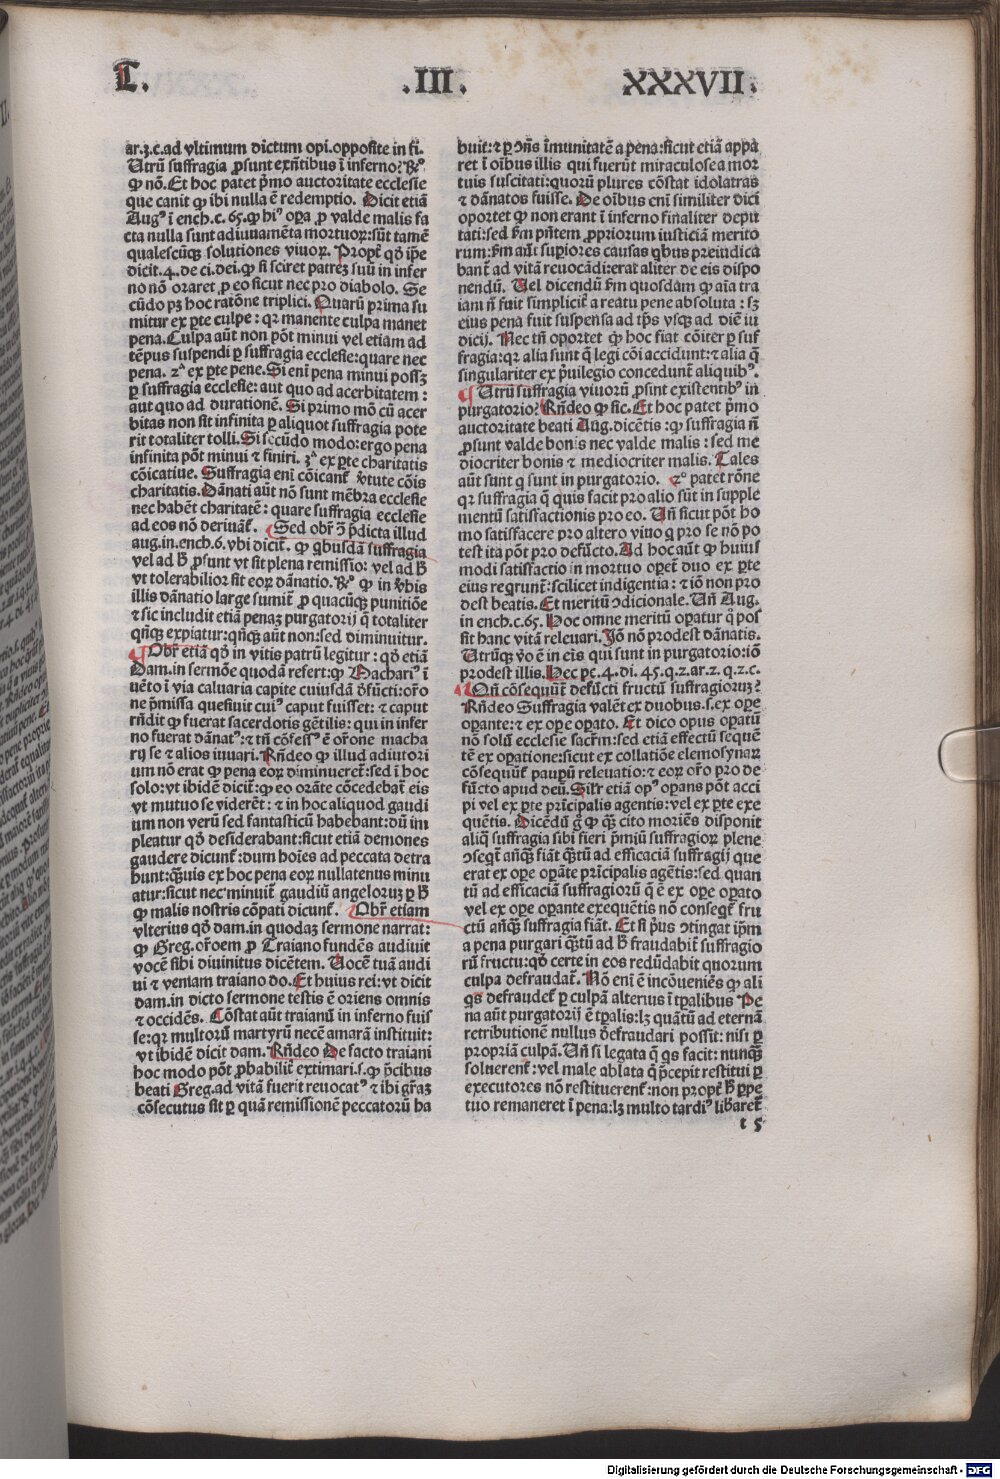 L. .III. XXXVII.
ar.ʒ.c.ad vltimum dictum opi.opposite in fi.
Utrū suffragia ꝓsunt exn̄tibus ī inferno? Rº
ꝙ nō. Et hoc patet p̄mo auctoritate ecclesie
que canit ꝙ ibi nulla ē redemptio. Dicit etiā
Augꝰ ī ench.c.65. ꝙ hiꝰ oꝑa ꝓ valde malis fa
cta nulla sunt adiuuamēta mortuoꝝ: sūt tamē
qualescūqꝫ solutiones viuoꝝ. Propt̄ qđ ip̄e
dicit.4.de ci.dei. ꝙ si sciret patreꝫ suū in infer
no nō oraret ꝓ eo sicut nec pro diabolo. Se
cūdo pꝫ hoc ratōne triplici. Quarū prima su
mitur ex ꝑte culpe: qꝛ manente culpa manet
pena. Culpa aūt non pōt minui vel etiam ad
tēpus suspendi ꝑ suffragia ecclesie: quare nec
pena. 2ª ex ꝑte pene. Si enī pena minui possꝫ
ꝑ suffragia ecclesie: aut quo ad acerbitatem:
aut quo ad durationē. Si primo mō cū acer
bitas non sit infinita ꝑ aliquot suffragia pote
rit totaliter tolli. Si secūdo modo: ergo pena
infinita pōt minui ⁊ finiri. ʒª ex ꝑte charitatis
cōicatiue. Suffragia enī cōicant̄ v̄tute cōis
charitatis. Dānati aūt nō sunt mēbra ecclesie
nec habēt charitatē: quare suffragia ecclesie
ad eos nō deriuāt̄. Sed obr̄ ꝯ p̄dicta illud
aug.in.ench.6.vbi dicit̄. ꝙ q̇busdā suffragia
vel ad ħ ꝓsunt vt sit plena remissio: vel ad ħ
vt tolerabilior sit eoꝝ dānatio. Rº ꝙ in v̄bis
illis dānatio large sumit̄ ꝓ quacūqꝫ punitiōe
⁊ sic includit etiā penaꝫ purgatorij q̄ totaliter
qn̄qꝫ expiatur: qn̄qꝫ aūt non: sed diminuitur.
Obr̄ etiā qđ in vitis patrū legitur: qđ etiā
Dam.in sermōe quodā refert: ꝙ Machariꝰ ī
uēto ī via caluaria capite cuiusdā d̄fūcti: or̄o
ne p̄missa quesiuit cuiꝰ caput fuisset: ⁊ caput
rn̄dit ꝙ fuerat sacerdotis gētilis: qui in infer
no fuerat dānatꝰ: ⁊ tn̄ cōfessꝰ ē or̄one macha
rij se ⁊ alios iuuari. Rn̄deo ꝙ illud adiutori
um nō erat ꝙ pena eoꝝ diminueret̄: sed ī hoc
solo: vt ibidē dicit̄: ꝙ eo orāte cōcedebat̄ eis
vt mutuo se viderēt: ⁊ in hoc aliquod gaudi
um non verū sed fantasticū habebant: dū im
pleatur qđ desiderabant: sicut etiā demones
gaudere dicunt̄: dum hoīes ad peccata detra
hunt: q̄uis ex hoc pena eoꝝ nullatenus minu
atur: sicut nec minuit̄ gaudiū angelorum ꝑ ħ
ꝙ malis nostris cōpati dicunt̄. Obr̄ etiam
vlterius qđ dam.in quodaꝫ sermone narrat:
ꝙ Greg. or̄oem ꝓ Traiano fundēs audiuit
vocē sibi diuinitus dicētem. Uocē tuā audi
ui ⁊ veniam traiano do. Et huius rei: vt dicit
dam.in dicto sermone testis ē oriens omnis
⁊ occidēs. Cōstat aūt traianū in inferno fuis
se: qꝛ multorū martyrū necē amarā instituit:
vt ibidē dicit dam. Rn̄deo De facto traiani
hoc modo pōt ꝓbabilit̄ extimari.s. ꝙ p̄cibus
beati Greg.ad vitā fuerit reuocatꝰ ⁊ ibi gr̄aꝫ
cōsecutus sit ꝑ quā remissionē peccatorū ha
buit: ⁊ ꝑ ꝯn̄s īmunitatē a pena: sicut etiā appa
ret ī oībus illis qui fuerūt miraculose a mor
tuis suscitati: quorū plures cōstat idolatras
⁊ dānatos fuisse. De oībus enī similiter dici
oportet ꝙ non erant ī inferno finaliter depu
tati: sed ẜm pn̄tem ꝓpriorum iusticiā merito
rum: ẜm aūt supiores causas q̇bus preuidica
bant̄ ad vitā reuocādi: erat aliter de eis dispo
nendū. Uel dicendū ẜm quosdam ꝙ aīa tra
iani n̄ fuit simplicit̄ a reatu pene absoluta: sꝫ
eius pena fuit suspensa ad tp̄s vsqꝫ ad diē iu
dicij. Nec tn̄ oportet ꝙ hoc fiat cōiter ꝑ suf
fragia: qꝛ alia sunt q̄ legi cōi accidunt: ⁊ alia q̄
singulariter ex p̄uilegio concedunt̄ aliquibꝰ.
Utrū suffragia viuorū ꝓsint existentibꝰ in
purgatorio? Rn̄deo ꝙ sic. Et hoc patet p̄mo
auctoritate beati Aug. dicētis: ꝙ suffragia n̄
ꝓsunt valde bonis nec valde malis: sed me
diocriter bonis ⁊ mediocriter malis. Tales
aūt sunt q̇ sunt in purgatorio. 2º patet rōne
qꝛ suffragia q̄ quis facit pro alio sūt in supple
mentū satisfactionis pro eo. Un̄ sicut pōt ho
mo satisfacere pro altero viuo q̇ pro se nō po
test ita pōt pro defūcto. Ad hoc aūt ꝙ huius
modi satisfactio in mortuo oꝑet̄ duo ex ꝑte
eius req̇runt̄: scilicet indigentia: ⁊ iō non pro
dest beatis. Et meritū ꝯdicionale. Un̄ Aug.
in ench.c.65. Hoc omne meritū oꝑatur q̇ pos
sit hanc vitā releuari. Iō nō prodest dānatis.
Utrūqꝫ v̄o ē in eis qui sunt in purgatorio: iō
prodest illis. Hec pe.4.di.45.q.2.ar.2.q.2.c.
Qn̄ cōsequūt̄ defūcti fructū suffragiorum?
Rn̄deo Suffragia valēt ex duobus.s.ex oꝑe
oꝑante: ⁊ ex oꝑe oꝑato. Et dico opus oꝑatū
nō solū ecclesie sacr̄m: sed etiā effectū sequē
tē ex oꝑatione: sicut ex collatiōe elemosynaꝝ
cōsequūt̄ pauꝑū releuatio: ⁊ eoꝝ or̄o pro de
fūcto apud deū. Silr̄ etiā opꝰ oꝑans pōt acci
pi vel ex ꝑte prīcipalis agentis: vel ex ꝑte exe
quētis. Dicēdū g̊ ꝙ q̄ꝫ cito moriēs disponit
aliq̄ suffragia sibi fieri p̄miū suffragioꝝ plene
ꝯseqt̄ anq̄ꝫ fiāt q̄tū ad efficaciā suffragij que
erat ex oꝑe oꝑāte prīcipalis agētis: sed quan
tū ad efficaciā suffragiorū q̄ ē ex oꝑe oꝑato
vel ex oꝑe oꝑante exequētis nō conseqt̄ fru
ctū anq̄ꝫ suffragia fiāt. Et si p̄us ꝯtingat ip̄m
a pena purgari q̄tū ad ħ fraudabit̄ suffragio
rū fructu: qđ certe in eos redūdabit quorum
culpa defraudat̄. Nō enī ē incōueniēs ꝙ ali
q̇s defraudet̄ ꝑ culpā alterius ī tp̄alibus Pe
na aūt purgatorij ē tp̄alis: lꝫ quātū ad eternā
retributionē nullus d̄fraudari possit: nisi ꝑ
propriā culpā. Un̄ si legata q̄ q̇s facit: nunq̄ꝫ
soluerent̄: vel male ablata q̄ p̄cepit restitui ꝑ
executores nō restituerent̄: non propt̄ ħ ꝑpe
tuo remaneret ī pena: lꝫ multo tardiꝰ libaret̄
t 5
Digitalisierung gefördert durch die Deutsche Forschungsgemeinschaft - DFG